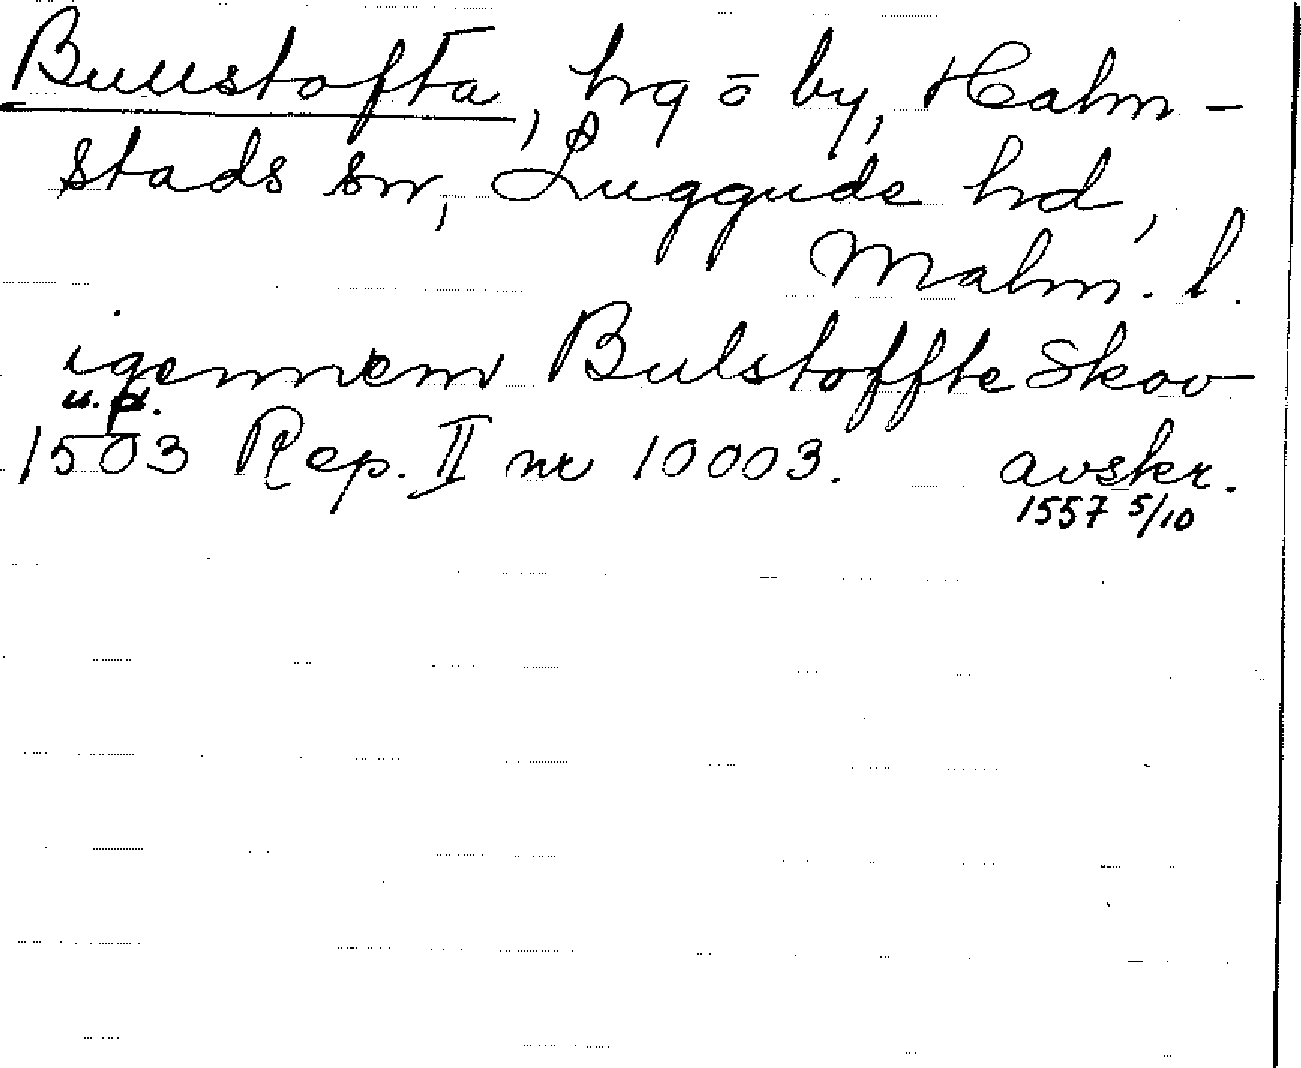 Bullstofta, hg o by, Halm-
stads sn, Luggude hd,
Malm. l.
igennem Bulstoffte Skov
u.d.
1503 Rep. II nr 10003. avskr.
1557 5/10